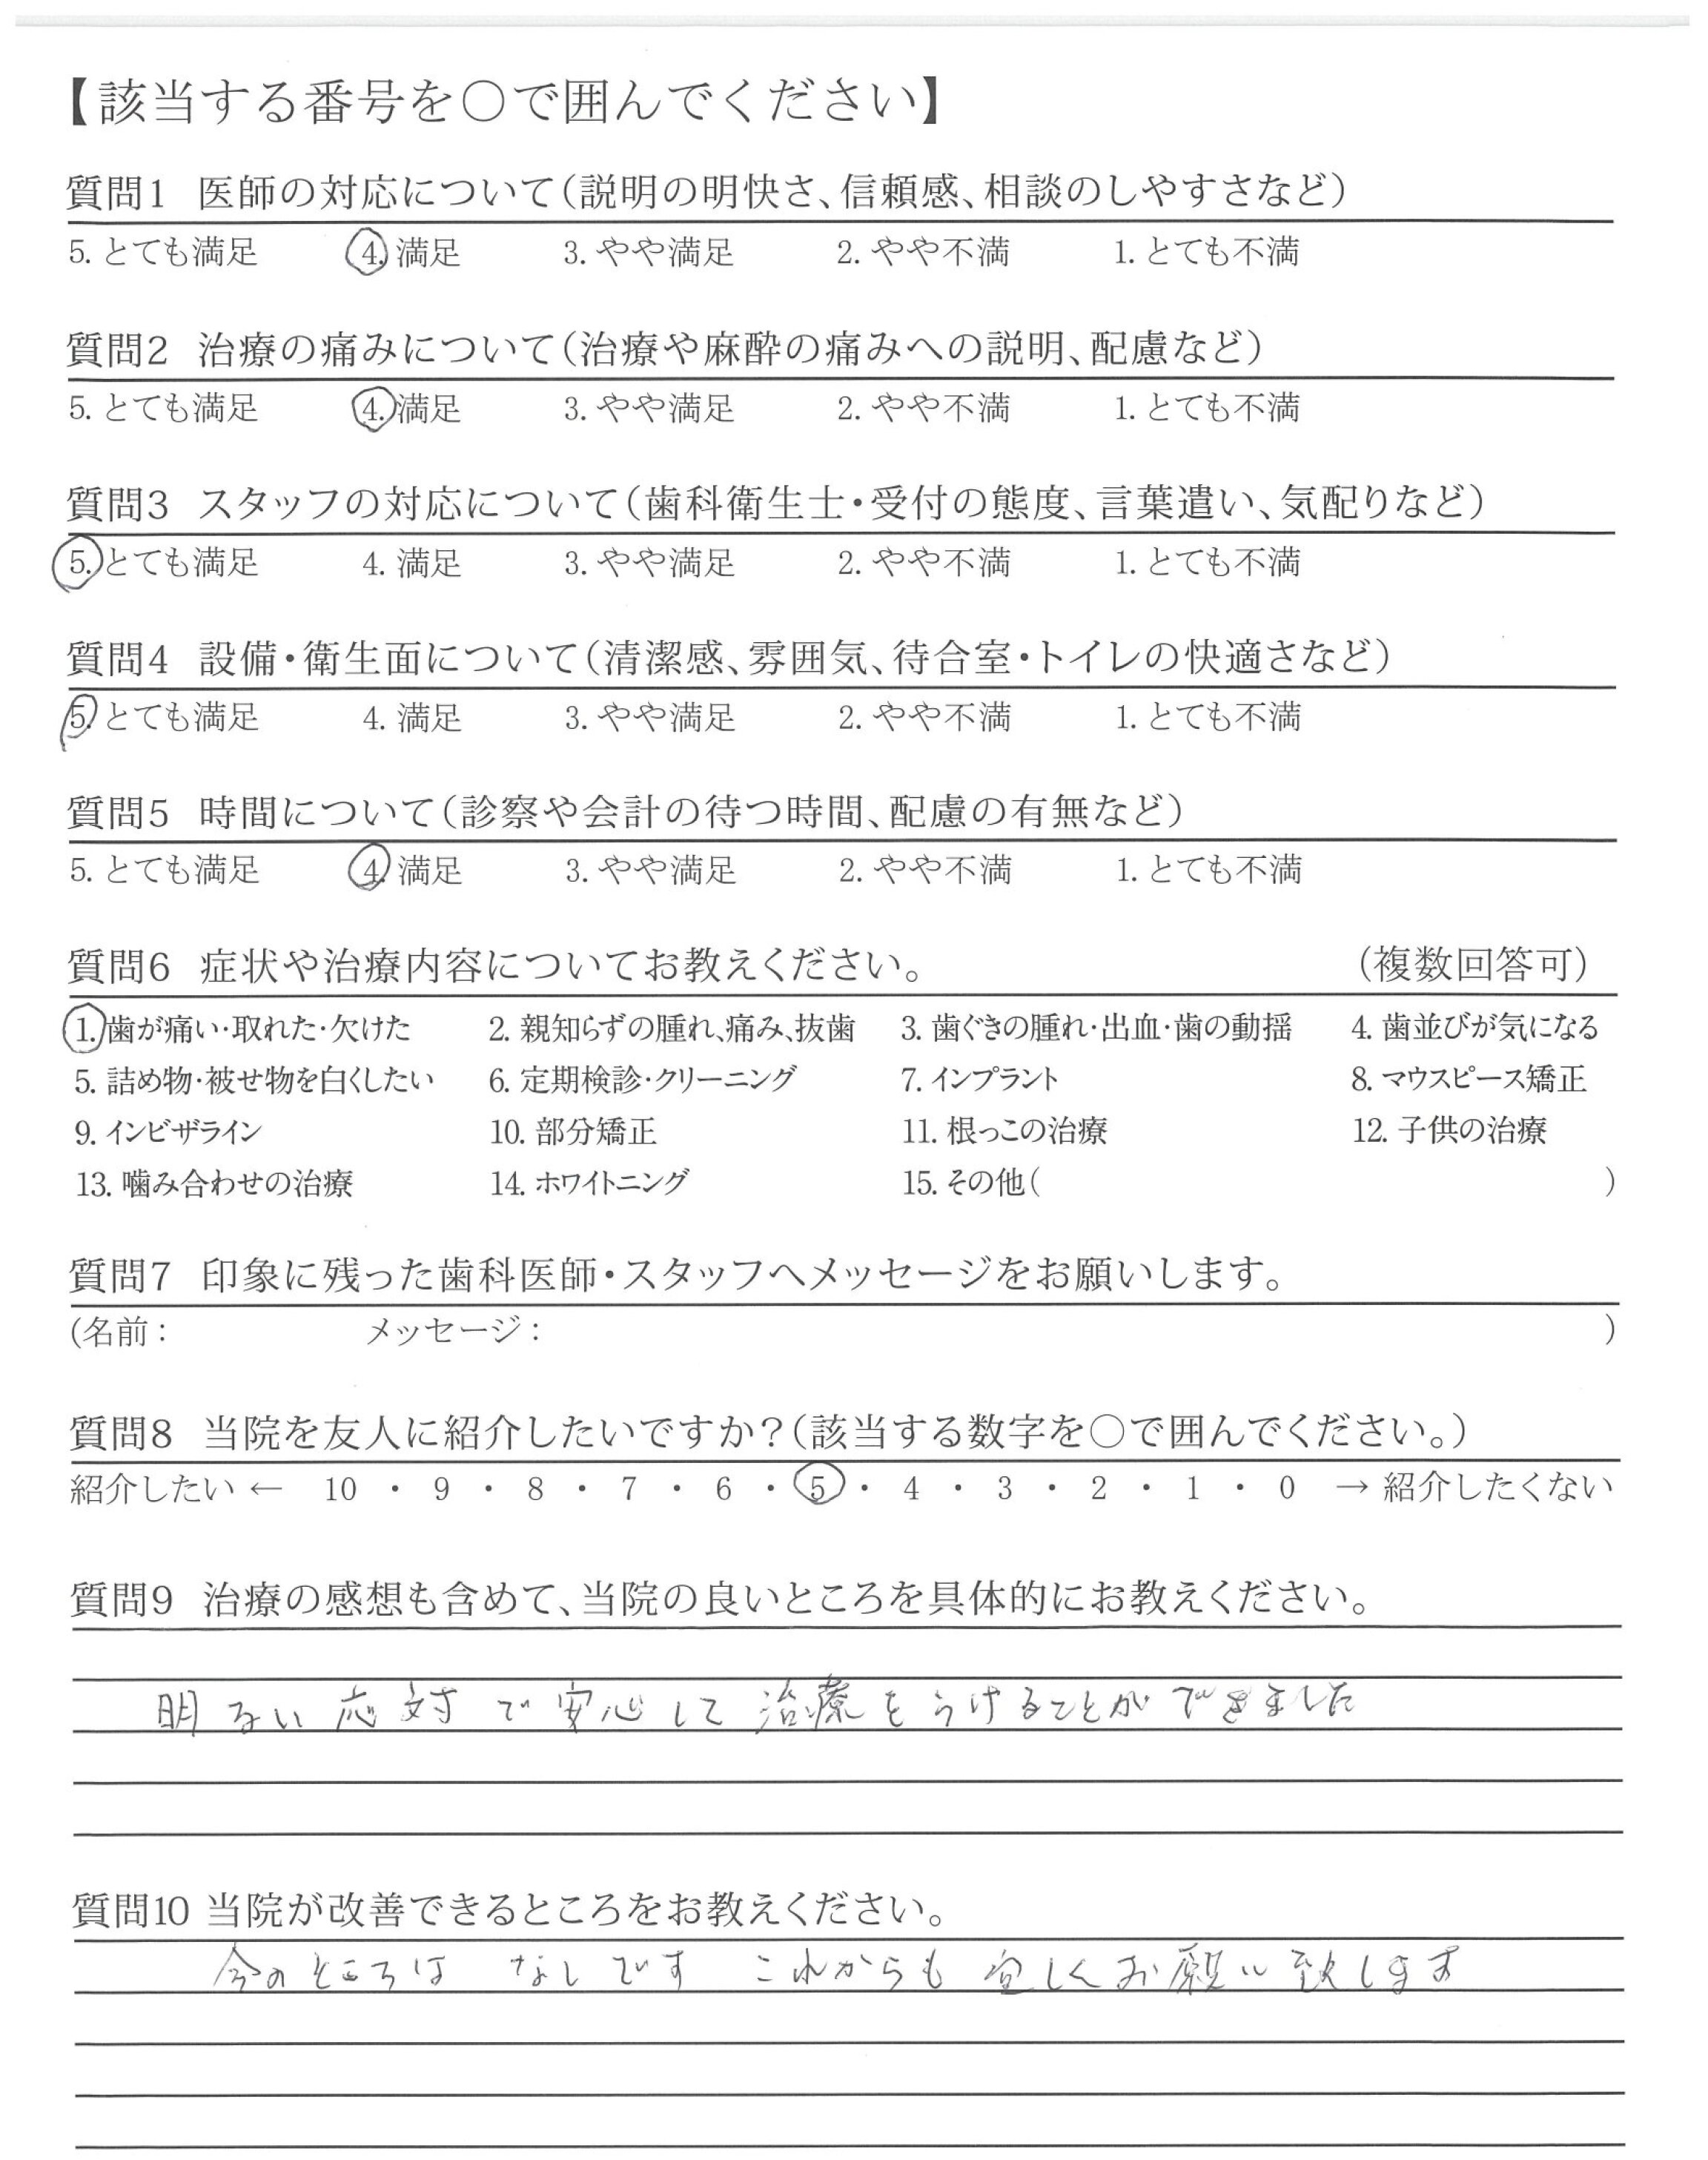 【該当する番号を〇で囲んでください】
質問1 医師の対応について(説明の明快さ、信頼感、相談のしやすさなど)
5. とても満足 4. 満足 3. やや満足 2. やや不満 1. とても不満
質問2 治療の痛みについて(治療や麻酔の痛みへの説明、配慮など)
5. とても満足 4. 満足 3. やや満足 2. やや不満 1. とても不満
質問3 スタッフの対応について(歯科衛生士・受付の態度、言葉遣い、気配りなど)
5. とても満足 4. 満足 3. やや満足 2. やや不満 1. とても不満
質問4 設備・衛生面について(清潔感、雰囲気、待合室・トイレの快適さなど)
5. とても満足 4. 満足 3. やや満足 2. やや不満 1. とても不満
質問5 時間について(診察や会計の待つ時間、配慮の有無など)
5. とても満足 4. 満足 3. やや満足 2. やや不満 1. とても不満
質問6 症状や治療内容についてお教えください。 (複数回答可)
1. 歯が痛い・取れた・欠けた 2. 親知らずの腫れ、痛み、抜歯 3. 歯ぐきの腫れ・出血・歯の動揺 4. 歯並びが気になる
5. 詰め物・被せ物を白くしたい 6. 定期検診・クリーニング 7. インプラント 8. マウスピース矯正
9. インビザライン 10. 部分矯正 11. 根っこの治療 12. 子供の治療
13. 噛み合わせの治療 14. ホワイトニング 15. その他( )
質問7 印象に残った歯科医師・スタッフへメッセージをお願いします。
(名前: メッセージ: )
質問8 当院を友人に紹介したいですか?(該当する数字を〇で囲んでください。)
紹介したい ← 10 ・ 9 ・ 8 ・ 7 ・ 6 ・ 5 ・ 4 ・ 3 ・ 2 ・ 1 ・ 0 → 紹介したくない
質問9 治療の感想も含めて、当院の良いところを具体的にお教えください。
明るい応対で安心して治療をうけることができました
質問10 当院が改善できるところをお教えください。
今のところは なしです これからも宜しくお願い致します